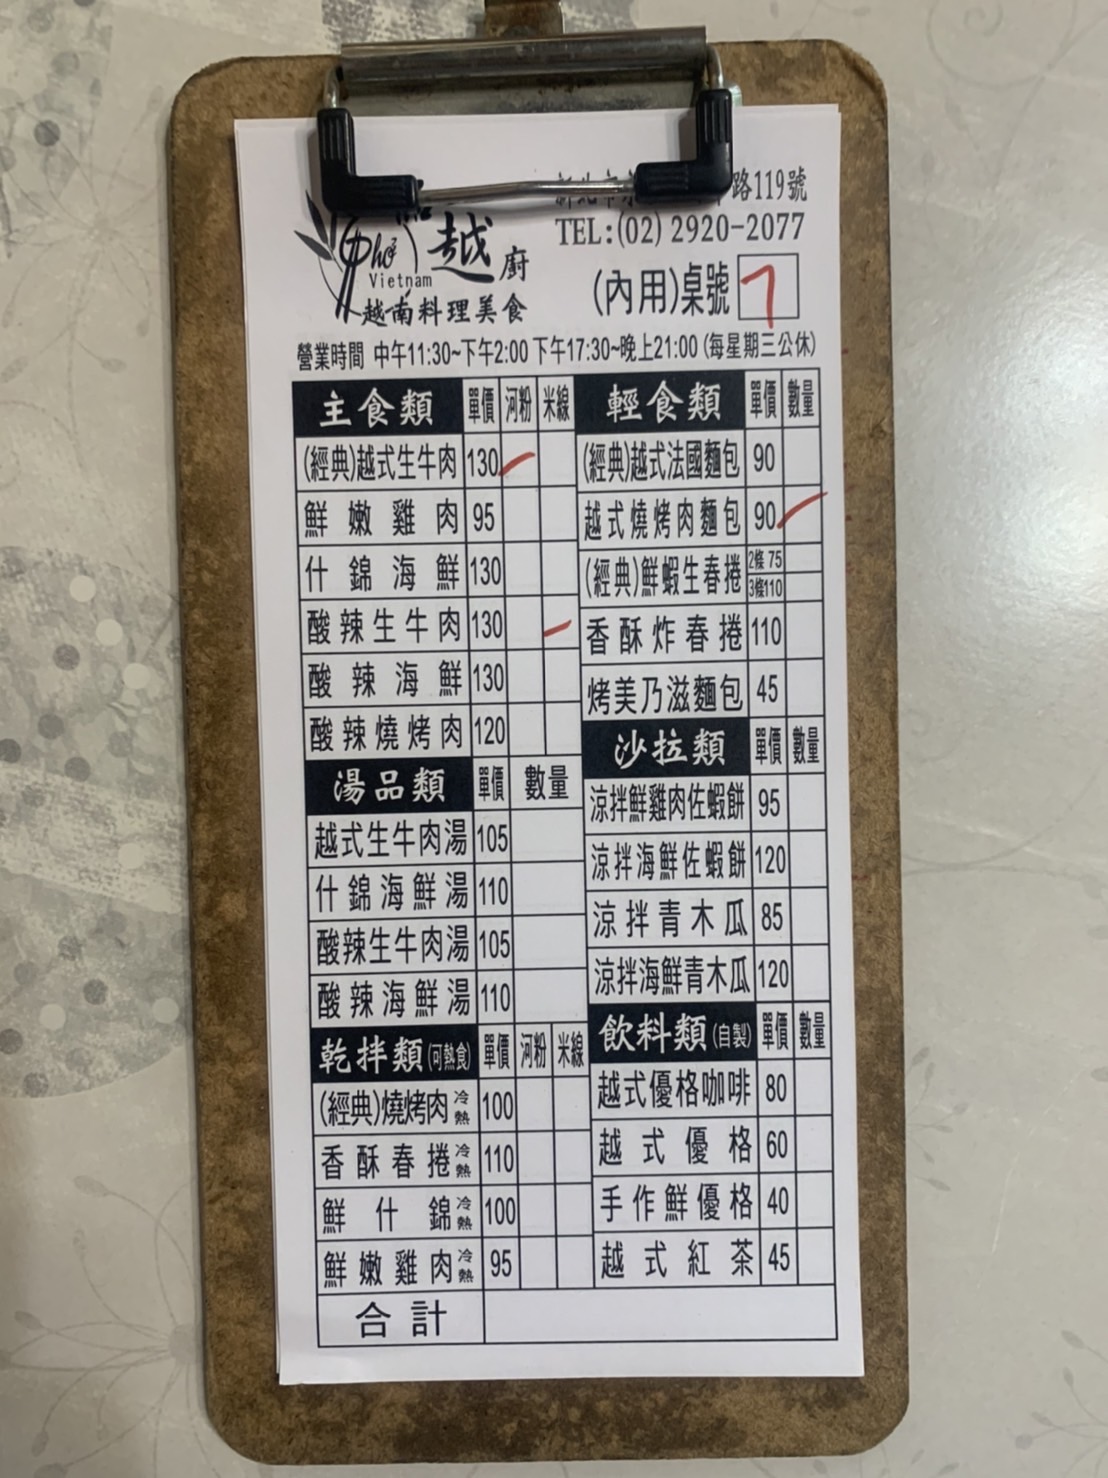 路119號
TEL:(02) 2920-2077
Phở 越廚
Vietnam
越南料理美食
(內用)桌號 7
營業時間 中午11:30~下午2:00 下午17:30~晚上21:00 (每星期三公休)
主食類 單價 河粉 米線
(經典)越式生牛肉 130
鮮嫩雞肉 95
什錦海鮮 130
酸辣生牛肉 130
酸辣海鮮 130
酸辣燒烤肉 120
湯品類 單價 數量
越式生牛肉湯 105
什錦海鮮湯 110
酸辣生牛肉湯 105
酸辣海鮮湯 110
乾拌類(可熱食) 單價 河粉 米線
(經典)燒烤肉 冷熱 100
香酥春捲 冷熱 110
鮮什錦 冷熱 100
鮮嫩雞肉 冷熱 95
輕食類 單價 數量
(經典)越式法國麵包 90
越式燒烤肉麵包 90
(經典)鮮蝦生春捲 2條 75 3條110
香酥炸春捲 110
烤美乃滋麵包 45
沙拉類 單價 數量
涼拌鮮雞肉佐蝦餅 95
涼拌海鮮佐蝦餅 120
涼拌青木瓜 85
涼拌海鮮青木瓜 120
飲料類(自製) 單價 數量
越式優格咖啡 80
越式優格 60
手作鮮優格 40
越式紅茶 45
合計